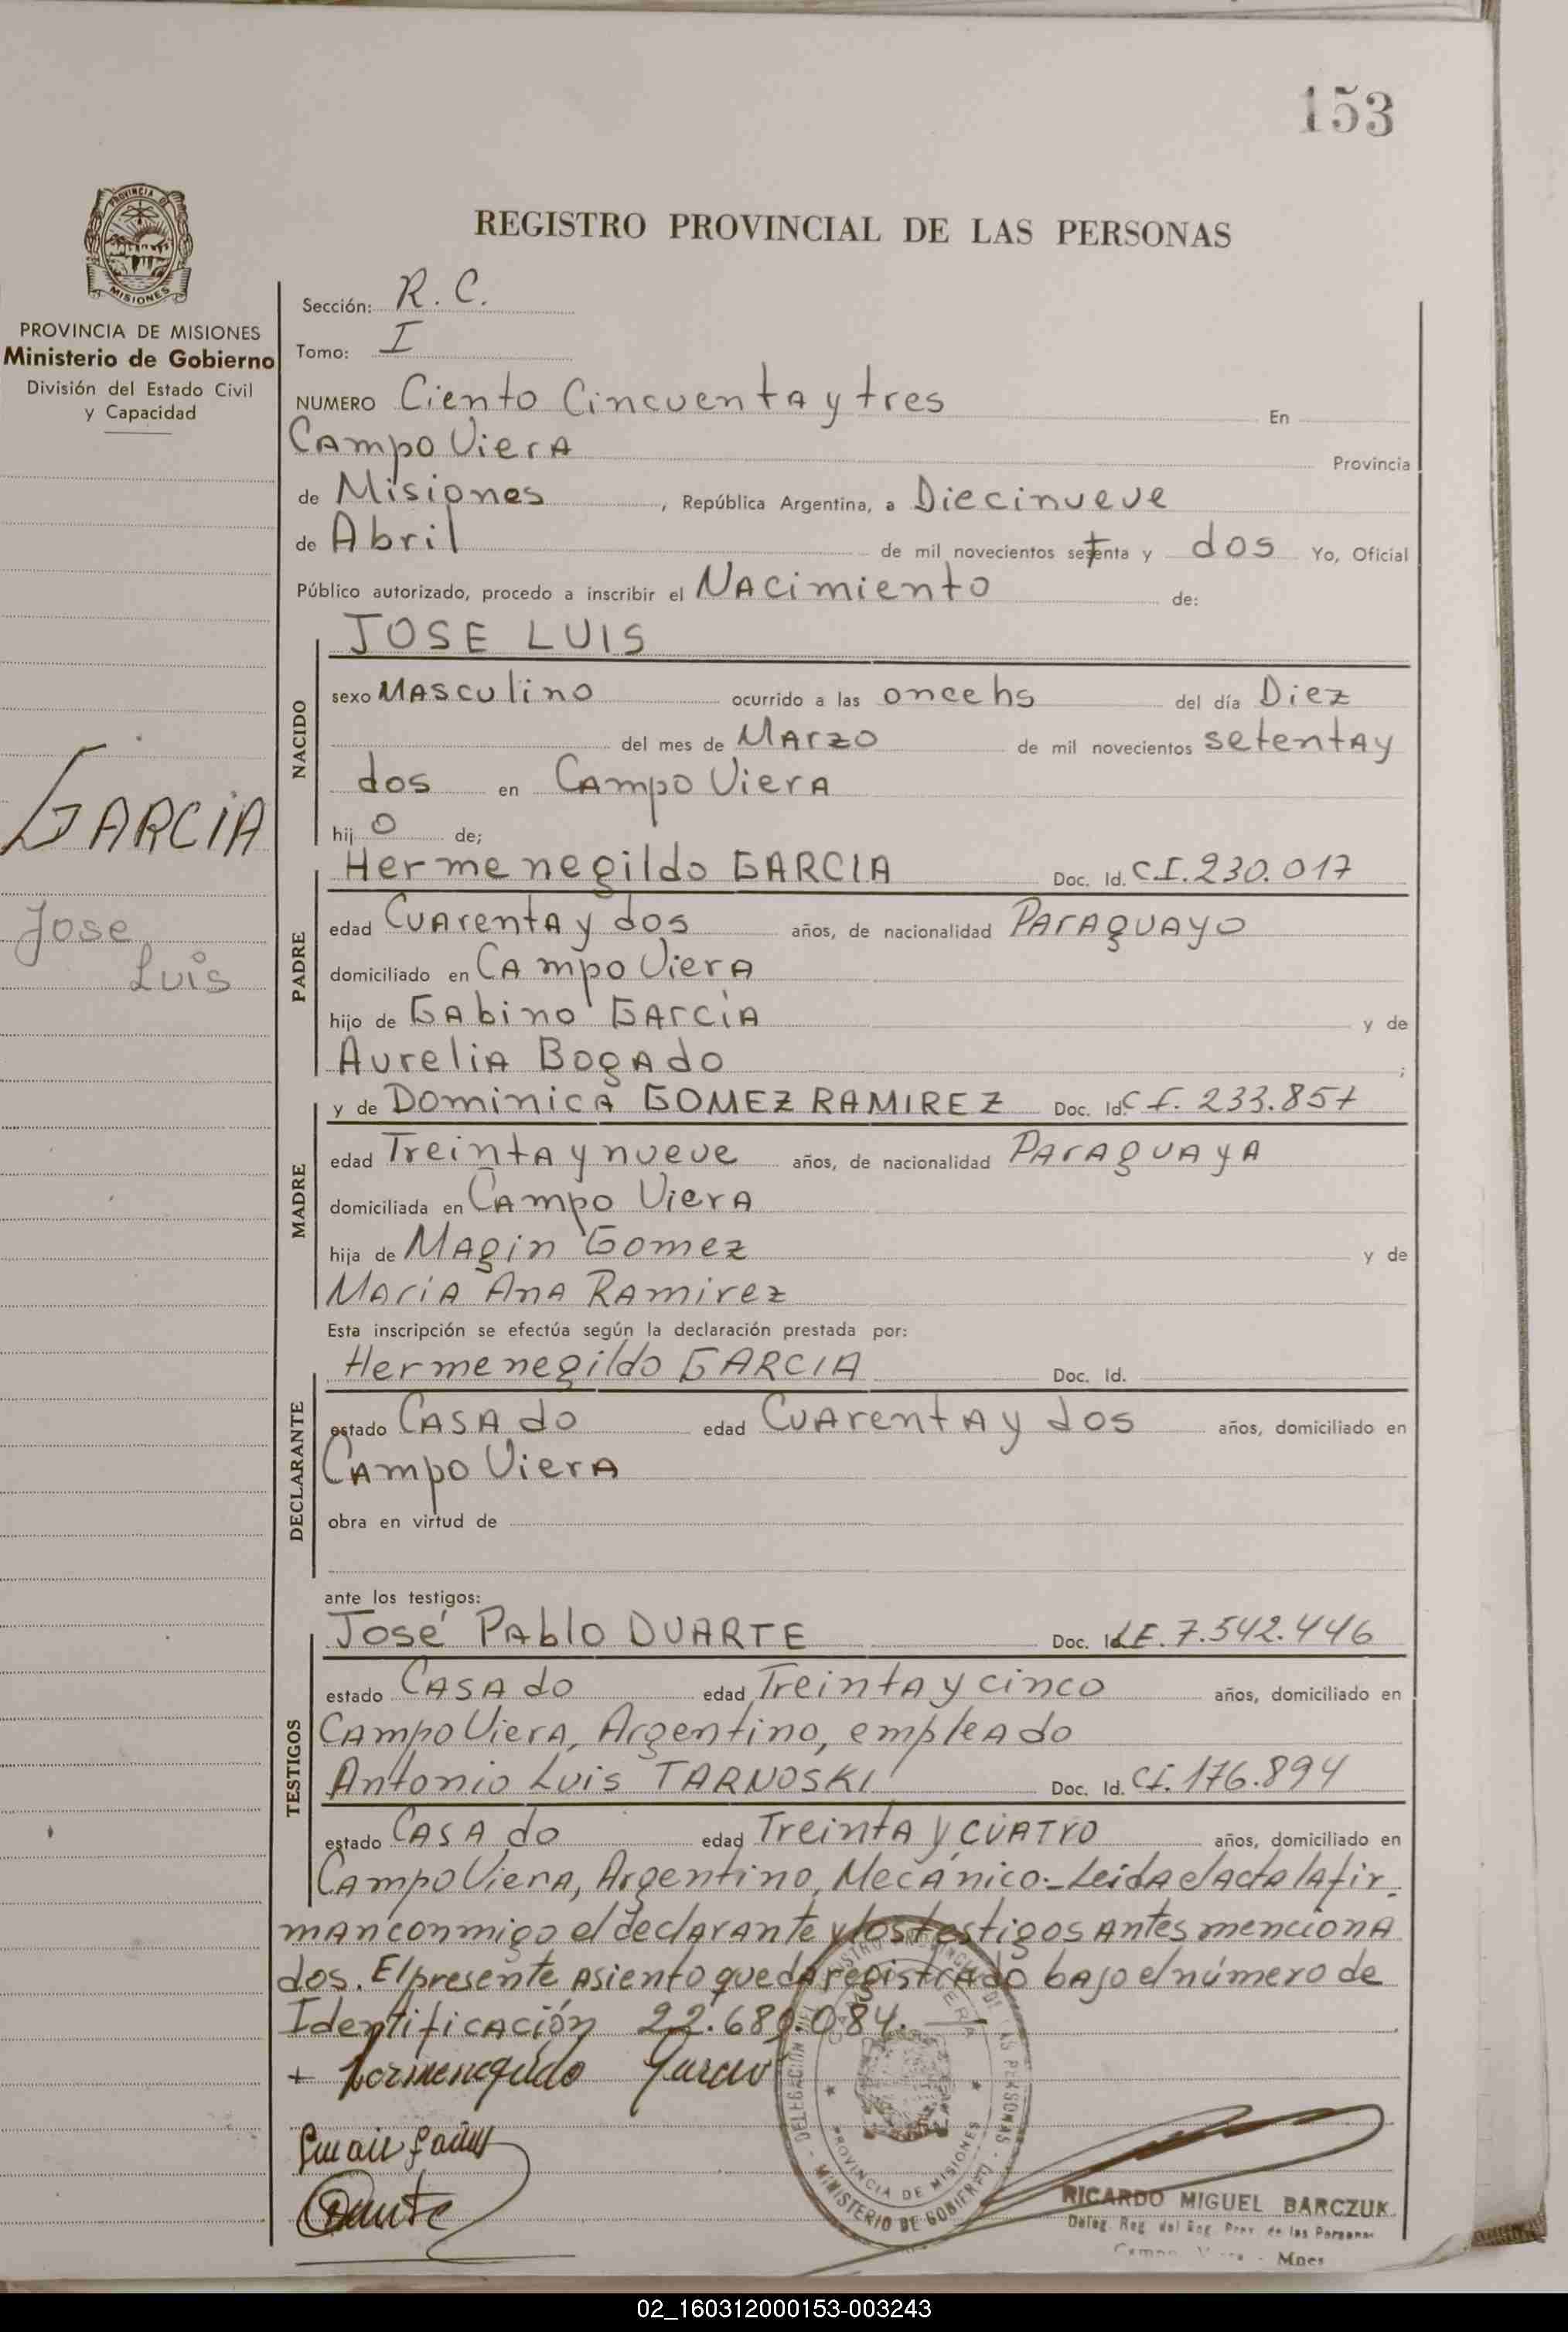 153
PROVINCIA DE
MISIONES
PROVINCIA DE MISIONES
Ministerio de Gobierno
División del Estado Civil
y Capacidad
REGISTRO PROVINCIAL DE LAS PERSONAS
Sección: R. C.
Tomo: I
NUMERO Ciento Cincuenta y tres En
Campo Viera Provincia
de Misiones, República Argentina, a Diecinueve
de Abril de mil novecientos setenta y dos Yo, Oficial
Público autorizado, procedo a inscribir el Nacimiento de:
NACIDO
JOSE LUIS
sexo Masculino ocurrido a las once hs del día Diez
del mes de Marzo de mil novecientos setenta y
dos en Campo Viera
hijo de;
GARCIA
Jose
Luis
PADRE
Hermenegildo GARCIA Doc. Id. C.I. 230.017
edad Cuarenta y dos años, de nacionalidad Paraguayo
domiciliado en Campo Viera
hijo de Gabino García y de
Aurelia Bogado;
MADRE
y de Dominica GOMEZ RAMIREZ Doc. Id. C.I. 233.857
edad Treinta y nueve años, de nacionalidad Paraguaya
domiciliada en Campo Viera
hija de Magin Gomez y de
María Ana Ramirez
Esta inscripción se efectúa según la declaración prestada por:
DECLARANTE
Hermenegildo GARCIA Doc. Id.
estado Casado edad Cuarenta y dos años, domiciliado en
Campo Viera
obra en virtud de
ante los testigos:
TESTIGOS
José Pablo DUARTE Doc. Id. L.E. 7.542.446
estado Casado edad Treinta y cinco años, domiciliado en
Campo Viera, Argentino, empleado
Antonio Luis TARNOSKI Doc. Id. C.I. 176.894
estado Casado edad Treinta y cuatro años, domiciliado en
Campo Viera, Argentino, Mecánico.- Leida el acta la fir-
man conmigo el declarante y los testigos antes menciona
dos. El presente asiento queda registrado bajo el número de
Identificación 22.689.084.
+ Hermenegildo Garcia
Duarte
DELEGACIÓN DEL REGISTRO PROVINCIAL DE LAS PERSONAS
PROVINCIA DE MISIONES
MINISTERIO DE GOBIERNO
RICARDO MIGUEL BARCZUK
Deleg. Reg. del Reg. Prov. de las Personas
Campo Viera - Mnes
02_160312000153-003243